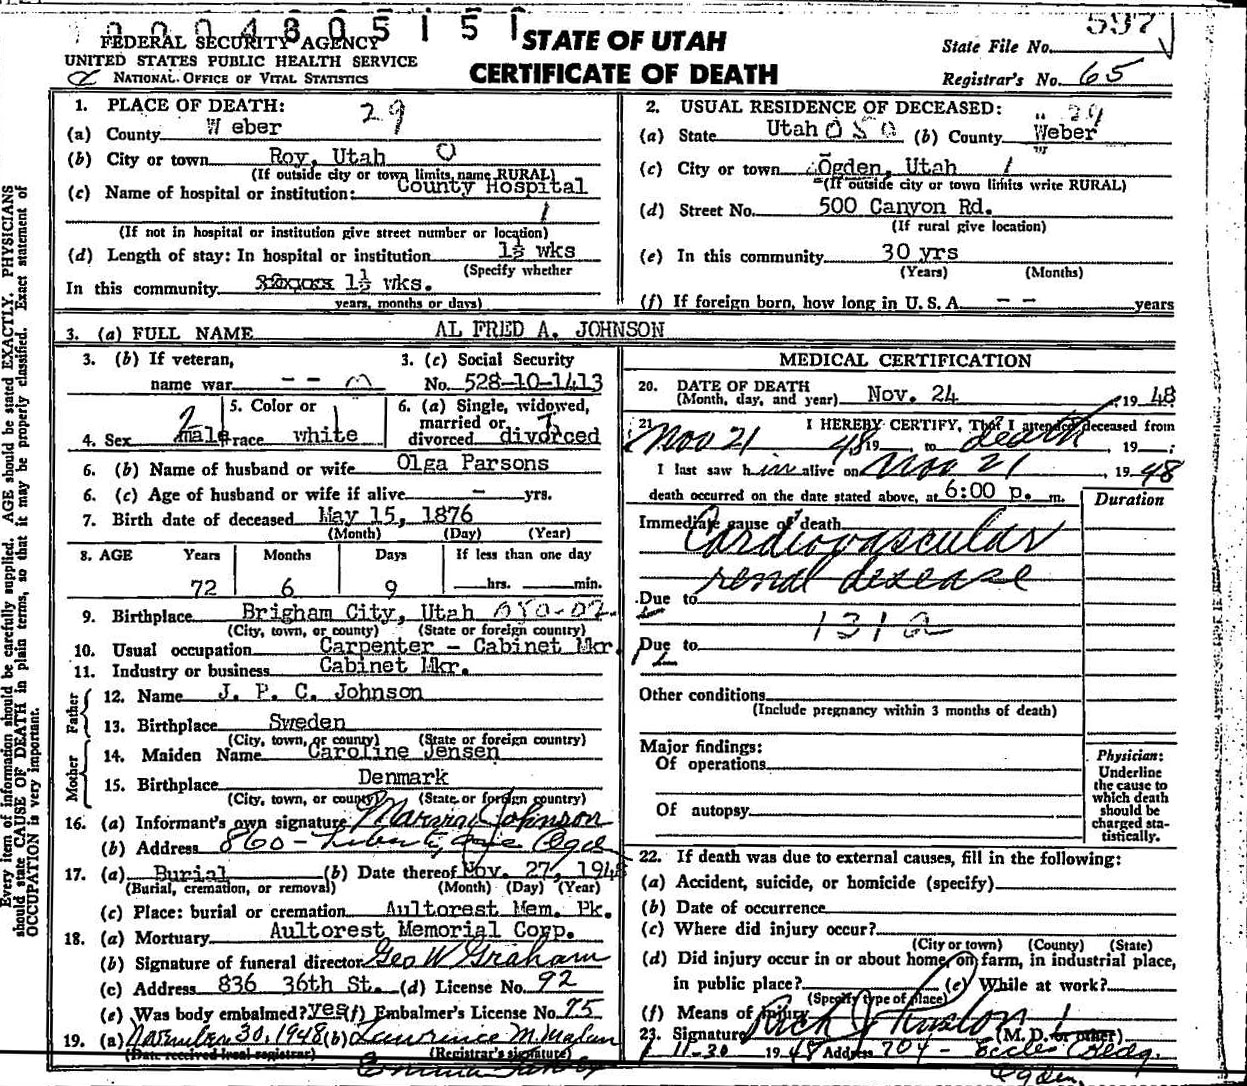 0 0 0 4 8 0 5 1 5 1
FEDERAL SECURITY AGENCY
UNITED STATES PUBLIC HEALTH SERVICE
NATIONAL OFFICE OF VITAL STATISTICS
STATE OF UTAH
CERTIFICATE OF DEATH
597
State File No.
Registrar's No. 65
Every item of information should be carefully supplied. AGE should be stated EXACTLY. PHYSICIANS
should state CAUSE OF DEATH in plain terms, so that it may be properly classified. Exact statement of
OCCUPATION is very important.
1. PLACE OF DEATH: 29
(a) County Weber
(b) City or town Roy, Utah 0
(If outside city or town limits, name RURAL)
(c) Name of hospital or institution: County Hospital
1
(If not in hospital or institution give street number or location)
(d) Length of stay: In hospital or institution 1½ wks
(Specify whether
In this community 1½ wks.
years, months or days)
2. USUAL RESIDENCE OF DECEASED: 29
(a) State Utah 050 (b) County Weber
(c) City or town Ogden, Utah 1
(If outside city or town limits write RURAL)
(d) Street No. 500 Canyon Rd.
(If rural give location)
(e) In this community 30 yrs
(Years) (Months)
(f) If foreign born, how long in U. S. A. -- years
3. (a) FULL NAME AL FRED A. JOHNSON
3. (b) If veteran,
name war -- 0
3. (c) Social Security
No. 528-10-1413
4. Sex male
5. Color or
race white
6. (a) Single, widowed,
married or
divorced divorced
6. (b) Name of husband or wife Olga Parsons
6. (c) Age of husband or wife if alive - yrs.
7. Birth date of deceased May 15, 1876
(Month) (Day) (Year)
8. AGE Years Months Days If less than one day
72 6 9 hrs. min.
9. Birthplace Brigham City, Utah 050-02
(City, town, or county) (State or foreign country)
10. Usual occupation Carpenter - Cabinet Mkr.
11. Industry or business Cabinet Mkr.
Father
12. Name J. P. C. Johnson
13. Birthplace Sweden
(City, town, or county) (State or foreign country)
Mother
14. Maiden Name Caroline Jensen
15. Birthplace Denmark
(City, town, or county) (State or foreign country)
16. (a) Informant's own signature Johnson
(b) Address 860 - Liberty Ave Ogden
17. (a) Burial (b) Date thereof Nov. 27, 1948
(Burial, cremation, or removal) (Month) (Day) (Year)
(c) Place: burial or cremation Aultorest Mem. Pk.
18. (a) Mortuary Aultorest Memorial Corp.
(b) Signature of funeral director Geo W Graham
(c) Address 836 36th St. (d) License No. 92
(e) Was body embalmed? yes (f) Embalmer's License No. 75
19. (a) November 30, 1948 (b) Laurence M. Malan
(Date received local registrar) (Registrar's signature)
Emma
MEDICAL CERTIFICATION
20. DATE OF DEATH
(Month, day, and year) Nov. 24, 1948
21. I HEREBY CERTIFY, That I attended deceased from
Nov 21 48 19 to death, 19 ;
I last saw him alive on Nov 21 1948
death occurred on the date stated above, at 6:00 p. m.
Duration
Immediate cause of death
Cardiovascular
renal disease
Due to
131a
Due to
12
Other conditions
(Include pregnancy within 3 months of death)
Major findings:
Of operations
Of autopsy
Physician:
Underline
the cause to
which death
should be
charged sta-
tistically.
22. If death was due to external causes, fill in the following:
(a) Accident, suicide, or homicide (specify)
(b) Date of occurrence
(c) Where did injury occur?
(City or town) (County) (State)
(d) Did injury occur in or about home, on farm, in industrial place,
in public place? (e) While at work?
(Specify type of place)
(f) Means of injury
23. Signature Rich Johnston (M. D. or other)
11-30 1948 Address 704 - Eccles Bldg.
Ogden.